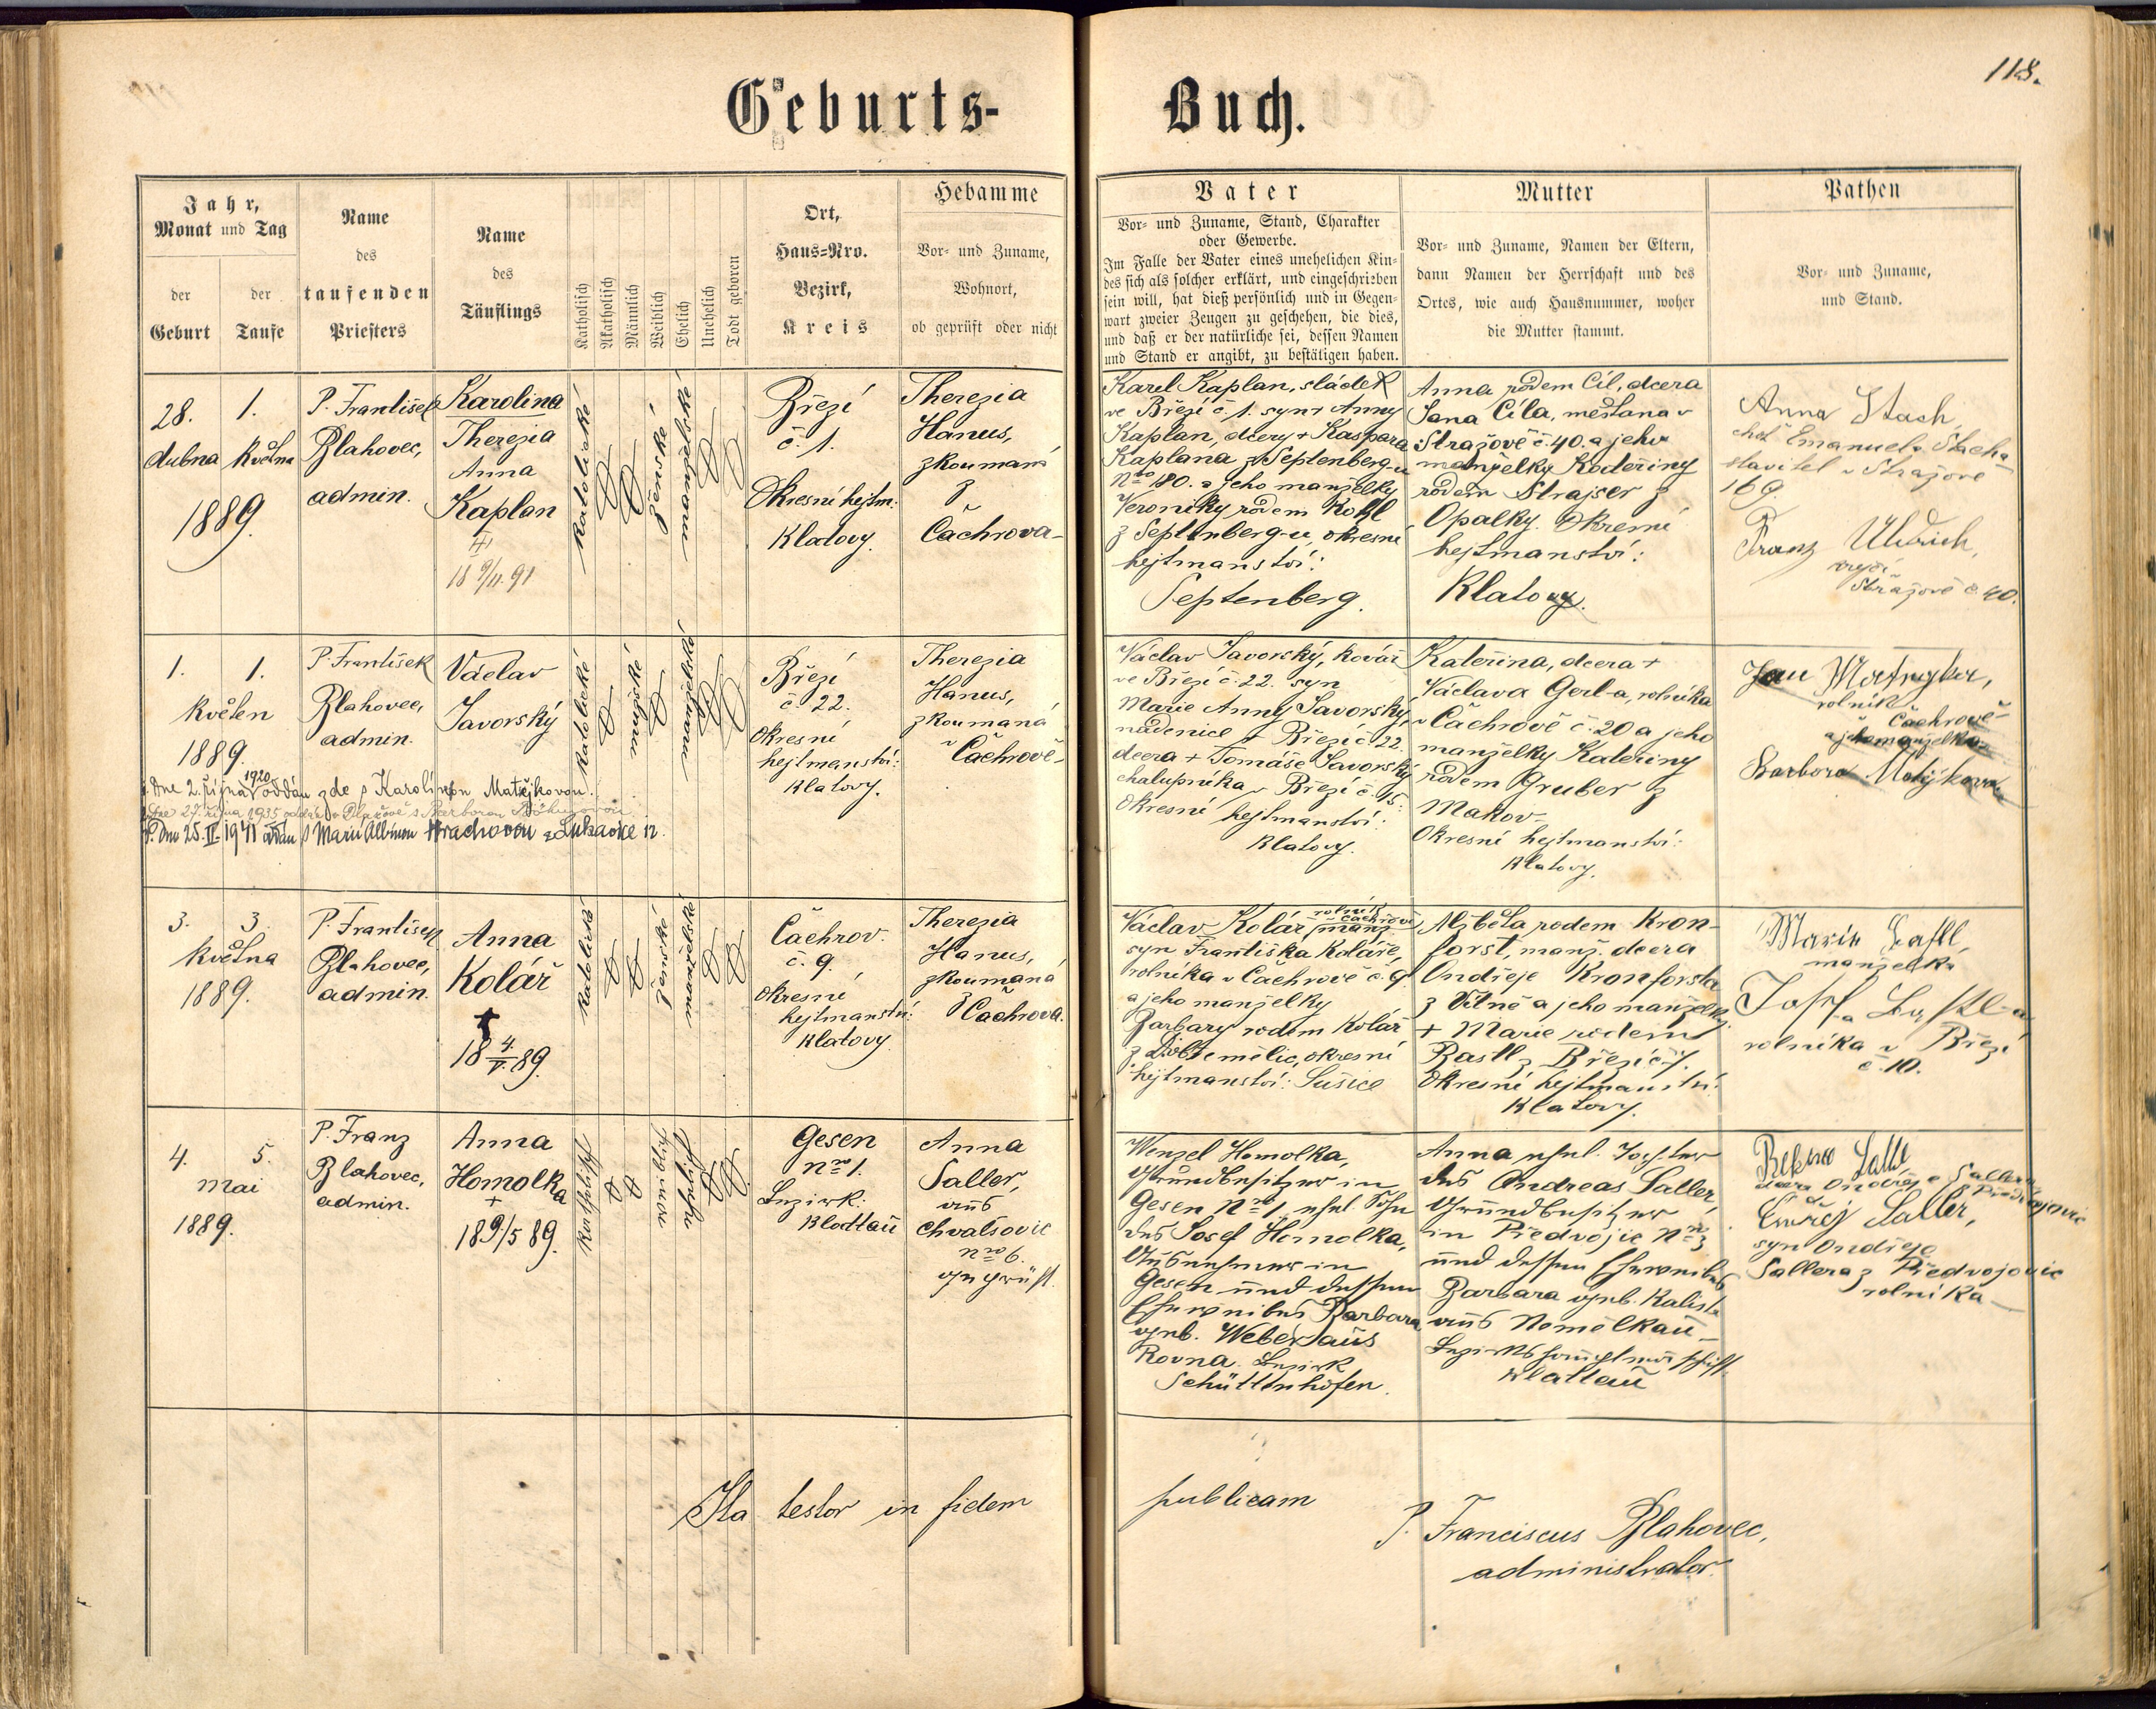 118.
Geburts-
Buch.
Jahr,
Monat und Tag
der
Geburt
der
Taufe
Name
des
taufenden
Priesters
Name
des
Täuflings
Katholisch
Akatholisch
Männlich
Weiblich
Ehelich
Unehelich
Todt geboren
Ort,
Haus-Nro.
Bezirk,
Kreis
Hebamme
Vor- und Zuname,
Wohnort,
ob geprüft oder nicht
Vater
Vor- und Zuname, Stand, Charakter
oder Gewerbe.
Im Falle der Vater eines unehelichen Kin-
des sich als solcher erklärt, und eingeschrieben
sein will, hat dieß persönlich und in Gegen-
wart zweier Zeugen zu geschehen, die dies,
und daß er der natürliche sei, dessen Namen
und Stand er angibt, zu bestätigen haben.
Mutter
Vor- und Zuname, Namen der Eltern,
dann Namen der Herrschaft und des
Ortes, wie auch Hausnummer, woher
die Mutter stammt.
Pathen
Vor- und Zuname,
und Stand.
28. 1.
dubna května
1889.
P. František
Blahovec,
admin.
Karolina
Therezia
Anna
Kaplan
18 9/11. 91
katolické
ženské
manželské
Březí
č. 1.
Okresní hejtm:
Klatovy.
Therezia
Hanus,
zkoumaná
z
Čachrova-
Karel Kaplan, sládek
ve Březí č. 1. syn + Anny
Kaplan, dcery + Kaspara
Kaplana z Septenberg-u
Nro 180. a jeho manželky
Veroniky rodem Kohl
z Septenberg-u, okresní
hejtmanství:
Septenberg.
Anna rodem Cíl, dcera
Jana Cíla, měšťana v
Stražově č. 40. a jeho
manželky Kateřiny
rodem Strajser z
Opalky. Okresní
hejtmanství:
Klatovy.
Anna Stach,
choť Emanuela Stacha
stavitel v Stražově
169.
Franz Uldrich,
Stražově č. 40.
1. 1.
květen
1889.
P. František
Blahovec,
admin.
Václav
Javorský
katolické
mužské
manželské
Březí
č. 22.
Okresní
hejtmanství:
Klatovy.
Therezia
Hanus,
zkoumaná
v Čachrově-
Václav Javorský, kovář
ve Březí č. 22. syn
Marie Anny Javorský,
nádenice v Březí č. 22.
dcera + Tomáše Javorský
chalupníka v Březí č. 15.
Okresní hejtmanství:
Klatovy.
Kateřina, dcera +
Václava Gerl-a, rolníka
v Čachrově č. 20 a jeho
manželky Kateřiny
rodem Gruber z
Makov-
Okresní hejtmanství:
Klatovy.
Jan Matějka,
rolník
Čachrově
a jeho manželka
Barbora Matějková
Dne 2. října 1920 oddán zde s Karolínou Matějkovou.
Dne 27. října 1935 oddán v Blažově s Barborou
Dne 25.II.1941 oddán s Marií Albínou Hrachovou z Lukavice 12.
3. 3.
května
1889.
P. František
Blahovec,
admin.
Anna
Kolář
†
18 4/V. 89.
katolické
ženské
manželské
Čachrov.
č. 9.
Okresní
hejtmanství:
Klatovy
Therezia
Hanus,
zkoumaná
z Čachrova.
Václav Kolář rolník v Čachrově manž.
syn Františka Koláře,
rolníka v Čachrově č. 9
a jeho manželky
Barbary rodem Kolář
z Dobřemělic, okresní
hejtmanství: Sušice
Alžběta rodem Kron-
forst, manž. dcera
Ondřeje Kronforsta
z Vitně a jeho manželky
+ Marie rodem
Rastl z Březí č. 7.
Okresní hejtmanství:
Klatovy.
Marie Lastl,
manželka
Josefa Lastl-a
rolníka v Březí
č. 10.
4. 5.
Mai
1889.
P. Franz
Blahovec,
admin.
Anna
Homolka
+
18 9./5 89.
katholisch
weiblich
ehelich
Gesen
Nro 1.
Bezirk:
Klattau
Anna
Saller,
aus
Chvalšovic
Nro 6.
geprüft.
Wenzel Homolka,
Grundbesitzer in
Gesen Nro 1, ehel. Sohn
des Josef Homolka,
Ausnehmer in
Gesen und dessen
Eheweibes Barbara
geb. Weber aus
Rovna. Bezirk
Schüttenhofen.
Anna ehel. Tochter
des Andreas Saller,
Grundbesitzer
in Předvojic Nro 3
und dessen Eheweibes
Barbara geb. Kalista
aus Nemělkau-
Bezirkshauptmannschaft.
Klattau
dcera Ondřeje Sallera
z Předvojovic
Ondřej Saller,
syn Ondřeje
Sallera z Předvojovic
rolníka-
Ita testor in fidem
publicam
P. Franciscus Blahovec,
administrator.